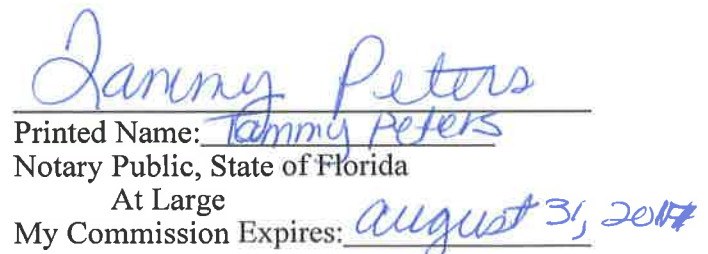 Tammy Peters
Printed Name: Tammy Peters
Notary Public, State of Florida
At Large
My Commission Expires: August 31, 2017